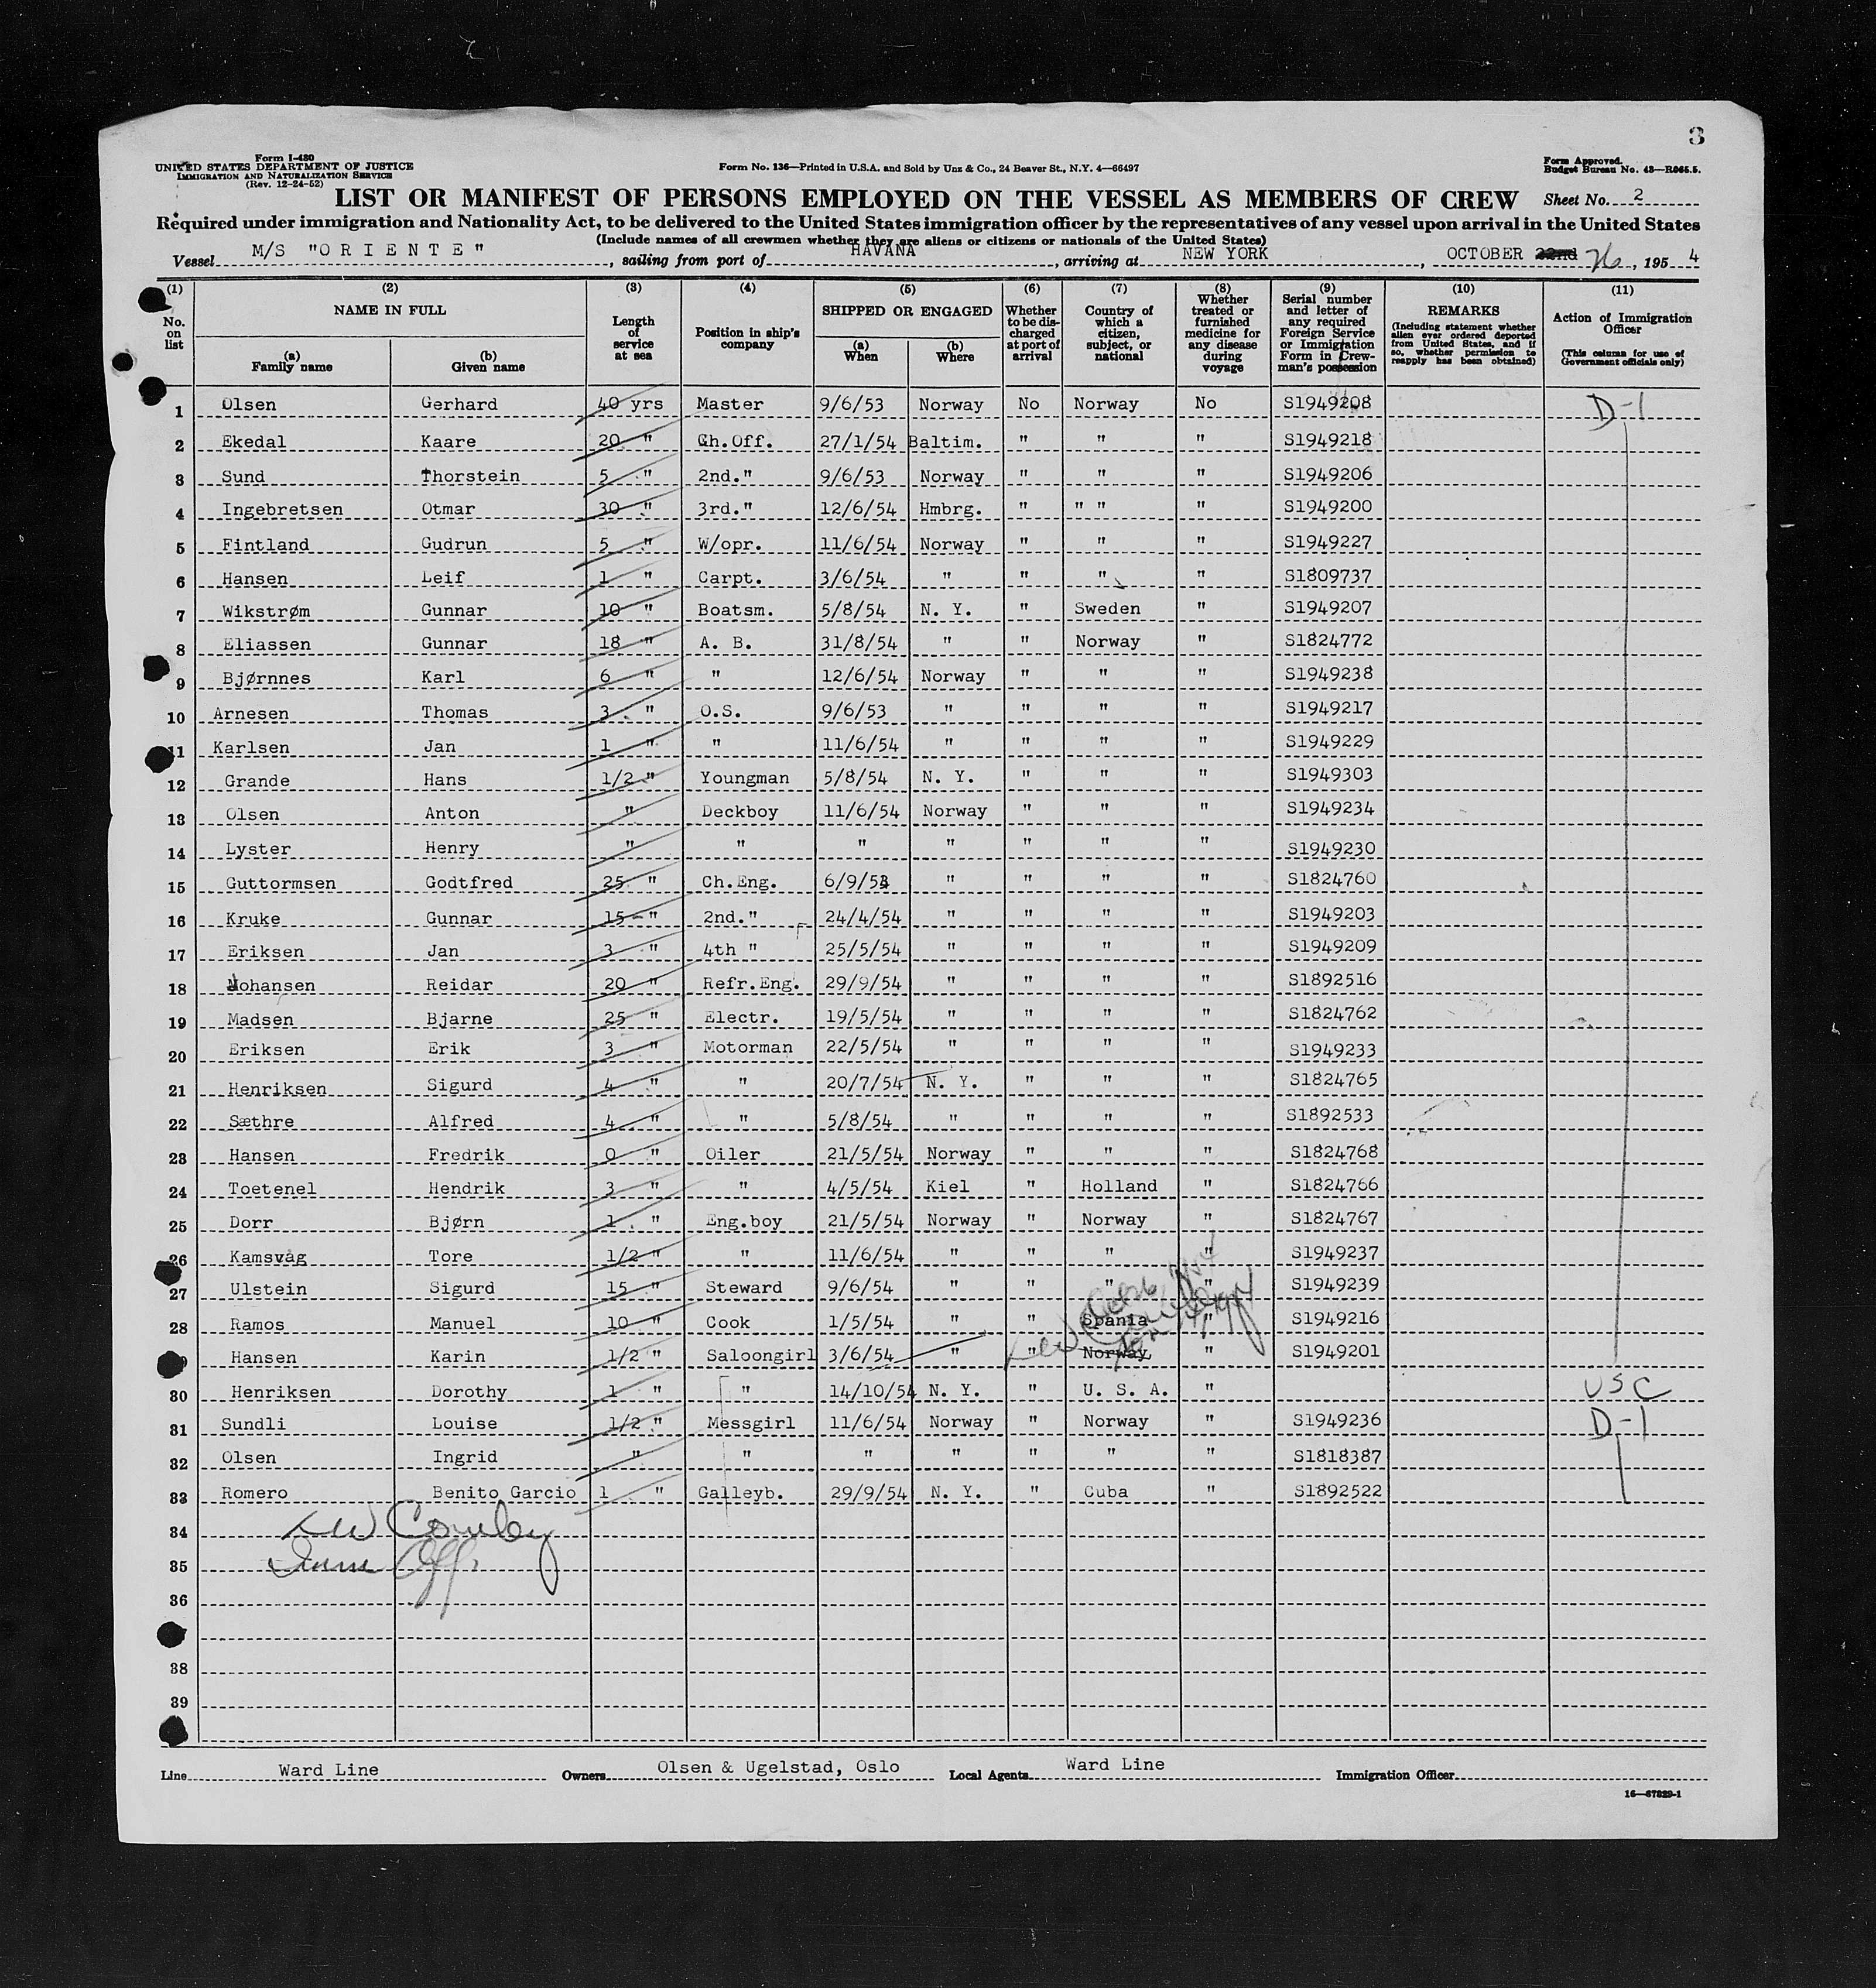 3
Form I-480
UNITED STATES DEPARTMENT OF JUSTICE
IMMIGRATION AND NATURALIZATION SERVICE
(Rev. 12-24-52)
Form No. 136—Printed in U.S.A. and Sold by Unz & Co., 24 Beaver St., N.Y. 4—66497
Form Approved.
Budget Bureau No. 43—R065.5.
LIST OR MANIFEST OF PERSONS EMPLOYED ON THE VESSEL AS MEMBERS OF CREW
Sheet No. 2
Required under immigration and Nationality Act, to be delivered to the United States immigration officer by the representatives of any vessel upon arrival in the United States
(Include names of all crewmen whether they are aliens or citizens or nationals of the United States)
Vessel M/S "ORIENTE", sailing from port of HAVANA, arriving at NEW YORK, OCTOBER 22nd 26, 1954
(1) No. on list
(2) NAME IN FULL
(a) Family name
(b) Given name
(3) Length of service at sea
(4) Position in ship's company
(5) SHIPPED OR ENGAGED
(a) When
(b) Where
(6) Whether to be discharged at port of arrival
(7) Country of which a citizen, subject, or national
(8) Whether treated or furnished medicine for any disease during voyage
(9) Serial number and letter of any required Foreign Service or Immigration Form in Crewman's possession
(10) REMARKS
(Including statement whether alien ever ordered deported from United States, and if so, whether permission to reapply has been obtained)
(11) Action of Immigration Officer
(This column for use of Government officials only)
1 Olsen Gerhard 40 yrs Master 9/6/53 Norway No Norway No S1949208 D-1
2 Ekedal Kaare 20 " Ch.Off. 27/1/54 Baltim. " " " S1949218
3 Sund Thorstein 5 " 2nd." 9/6/53 Norway " " " S1949206
4 Ingebretsen Otmar 30 " 3rd." 12/6/54 Hmbrg. " " " " S1949200
5 Fintland Gudrun 5 " W/opr. 11/6/54 Norway " " " S1949227
6 Hansen Leif 1 " Carpt. 3/6/54 " " " " S1809737
7 Wikstrøm Gunnar 10 " Boatsm. 5/8/54 N. Y. " Sweden " S1949207
8 Eliassen Gunnar 18 " A. B. 31/8/54 " " Norway " S1824772
9 Bjørnnes Karl 6 " " 12/6/54 Norway " " " S1949238
10 Arnesen Thomas 3 " O.S. 9/6/53 " " " " S1949217
11 Karlsen Jan 1 " " 11/6/54 " " " " S1949229
12 Grande Hans 1/2 " Youngman 5/8/54 N. Y. " " " S1949303
13 Olsen Anton " Deckboy 11/6/54 Norway " " " S1949234
14 Lyster Henry " " " " " " " S1949230
15 Guttormsen Godtfred 25 " Ch.Eng. 6/9/53 " " " " S1824760
16 Kruke Gunnar 15 " 2nd." 24/4/54 " " " " S1949203
17 Eriksen Jan 3 " 4th " 25/5/54 " " " " S1949209
18 Johansen Reidar 20 " Refr.Eng. 29/9/54 " " " " S1892516
19 Madsen Bjarne 25 " Electr. 19/5/54 " " " " S1824762
20 Eriksen Erik 3 " Motorman 22/5/54 " " " " S1949233
21 Henriksen Sigurd 4 " " 20/7/54 N. Y. " " " S1824765
22 Sæthre Alfred 4 " " 5/8/54 " " " " S1892533
23 Hansen Fredrik 0 " Oiler 21/5/54 Norway " " " S1824768
24 Toetenel Hendrik 3 " " 4/5/54 Kiel " Holland " S1824766
25 Dorr Bjørn 1 " Eng.boy 21/5/54 Norway " Norway " S1824767
26 Kamsvåg Tore 1/2 " " 11/6/54 " " " " S1949237
27 Ulstein Sigurd 15 " Steward 9/6/54 " " " " S1949239
28 Ramos Manuel 10 " Cook 1/5/54 " " Spania " S1949216
Hansen Karin 1/2 " Saloongirl 3/6/54 " " Norway " S1949201
30 Henriksen Dorothy 1 " " 14/10/54 N. Y. " U. S. A. " USC
31 Sundli Louise 1/2 " Messgirl 11/6/54 Norway " Norway " S1949236 D-1
32 Olsen Ingrid " " " " " " " S1818387
33 Romero Benito Garcio 1 " Galleyb. 29/9/54 N. Y. " Cuba " S1892522
34
35
36
38
39
Line Ward Line Owners Olsen & Ugelstad, Oslo Local Agents Ward Line Immigration Officer
16—67829-1